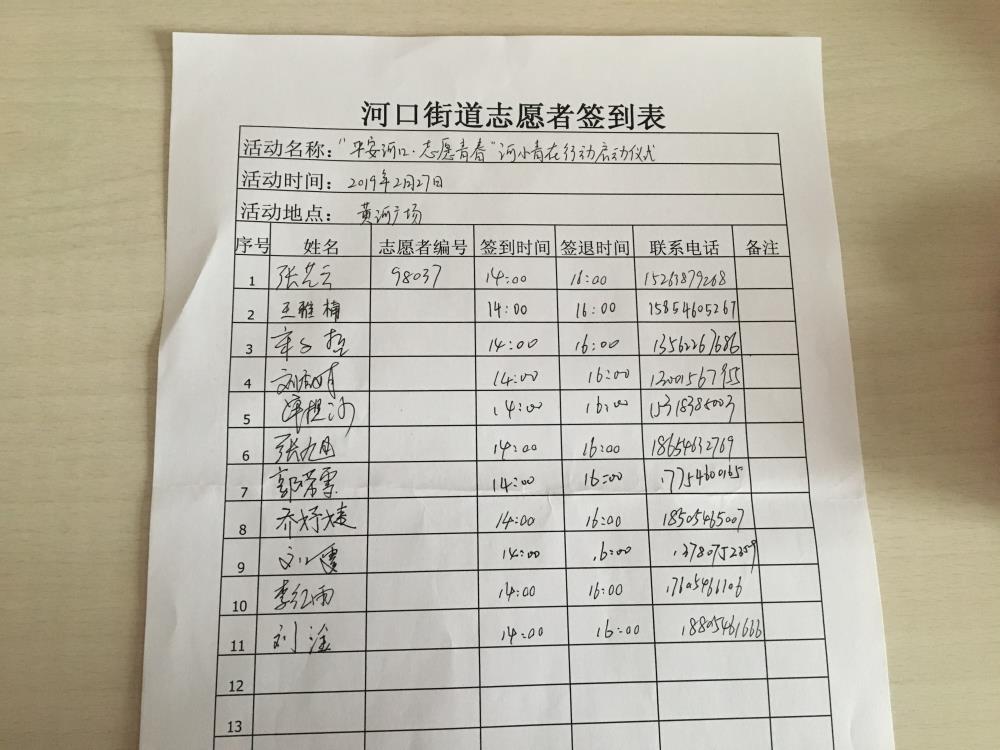 河口街道志愿者签到表
活动名称：“平安河口·志愿青春”河小青在行动启动仪式
活动时间：2019年2月27日
活动地点：黄河广场
序号 姓名 志愿者编号 签到时间 签退时间 联系电话 备注
1 张艺云 98037 14:00 16:00 15263879268
2 王雅楠 14:00 16:00 15854605267
3 14:00 16:00 13562267686
4 14:00 16:00 13001567955
5 14:00 16:00 15318385003
6 张旭 14:00 16:00 18654632769
7 郭荣雪 14:00 16:00 17754600165
8 乔婷婕 14:00 16:00 18505465007
9 14:00 16:00 13780752359
10 李红雨 14:00 16:00 17605466106
11 刘淦 14:00 16:00 18805461666
12
13